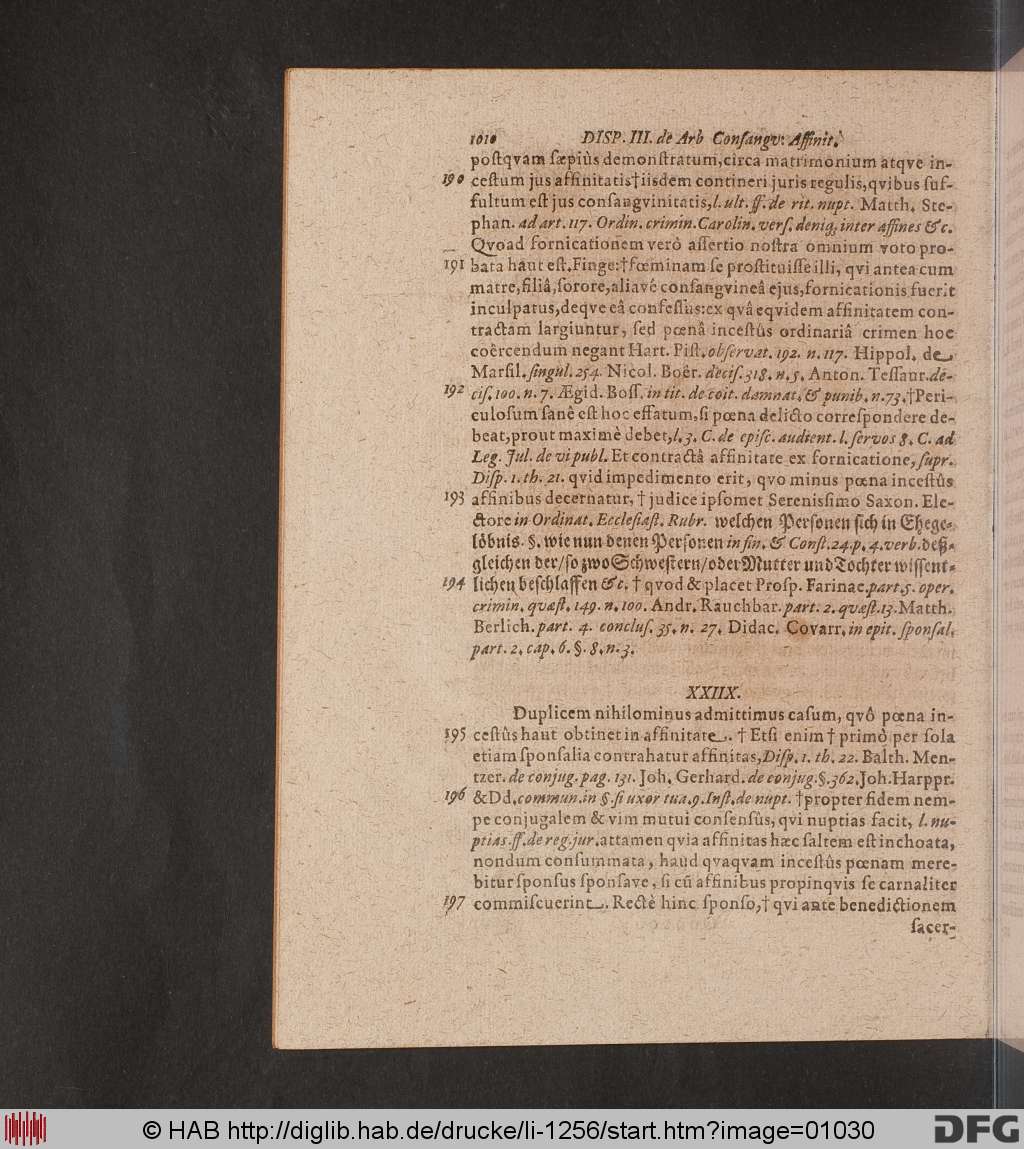 1010 DISP. III. de Arb Conſangv: Affinit.
poſtqvam ſæpiùs demonſtratum, circa matrimonium atqve in-
190 ceſtum jus affinitatis † iisdem contineri juris regulis, qvibus ſuf-
fultum eſt jus conſangvinitatis, l. ult. ff. de rit. nupt. Matth. Ste-
phan. ad art. 117. Ordin. crimin. Carolin. verſ. deniq; inter affines &c.
Qvoad fornicationem verò aſſertio noſtra omnium voto pro-
191 bata haut eſt. Finge: † fœminam ſe proſtituiſſe illi, qvi antea cum
matre, filiâ, ſorore, aliavé conſangvineâ ejus, fornicationis fuerit
inculpatus, deqve eâ confeſſus: ex qvâ eqvidem affinitatem con-
tractam largiuntur, ſed pœnâ inceſtûs ordinariâ crimen hoc
coërcendum negant Hart. Piſt. obſervat. 192. n. 117. Hippol. de
Marſil. ſingul. 254. Nicol. Boër. deciſ. 318. n. 5. Anton. Teſſaur. de-
192 ciſ. 100. n. 7. Ægid. Boſſ. in tit. de coit. damnat. & punib. n. 73. † Peri-
culoſum ſanê eſt hoc effatum, ſi pœna delicto correſpondere de-
beat, prout maximè debet, l. 3. C. de epiſc. audient. l. ſervos 8. C. ad
Leg. Jul. de vi publ. Et contractâ affinitate ex fornicatione, ſupr.
Diſp. 1. th. 21. qvid impedimento erit, qvo minus pœna inceſtûs
193 affinibus decernatur, † judice ipſomet Sereniſſimo Saxon. Ele-
ctore in Ordinat. Eccleſiaſt. Rubr. welchen Perſonen ſich in Ehege-
löbnis. §. wie nun denen Perſonen in fin. & Conſt. 24. p. 4. verb. deß-
gleichen der / ſo zwo Schweſtern / oder Mutter und Tochter wiſſent-
194 lichen beſchlaffen &c. † qvod & placet Proſp. Farinac. part. 5. oper.
crimin. quæſt. 149. n. 100. Andr. Rauchbar. part. 2. quæſt. 13. Matth.
Berlich. part. 4. concluſ. 35. n. 27. Didac. Covarr. in epit. ſponſal.
part. 2. cap. 6. §. 8. n. 3.
XXIIX.
Duplicem nihilominus admittimus caſum, qvô pœna in-
195 ceſtûs haut obtinet in affinitate. † Etſi enim † primò per ſola
etiam ſponſalia contrahatur affinitas, Diſp. 1. th. 22. Balth. Men-
tzer. de conjug. pag. 131. Joh. Gerhard. de conjug. §. 362. Joh. Harppr.
196 & Dd. commun. in §. ſi uxor tua. 9. Inſt. de nupt. † propter fidem nem-
pe conjugalem & vim mutui conſenſûs, qvi nuptias facit, l. nu-
ptias. ff. de reg. jur. attamen qvia affinitas hæc ſaltem eſt inchoata,
nondum conſummata, haud qvaqvam inceſtûs pœnam mere-
bitur ſponſus ſponſave, ſi cũ affinibus propinqvis ſe carnaliter
197 commiſcuerint. Rectè hinc ſponſo, † qvi ante benedictionem
ſacer-
© HAB http://diglib.hab.de/drucke/li-1256/start.htm?image=01030
DFG